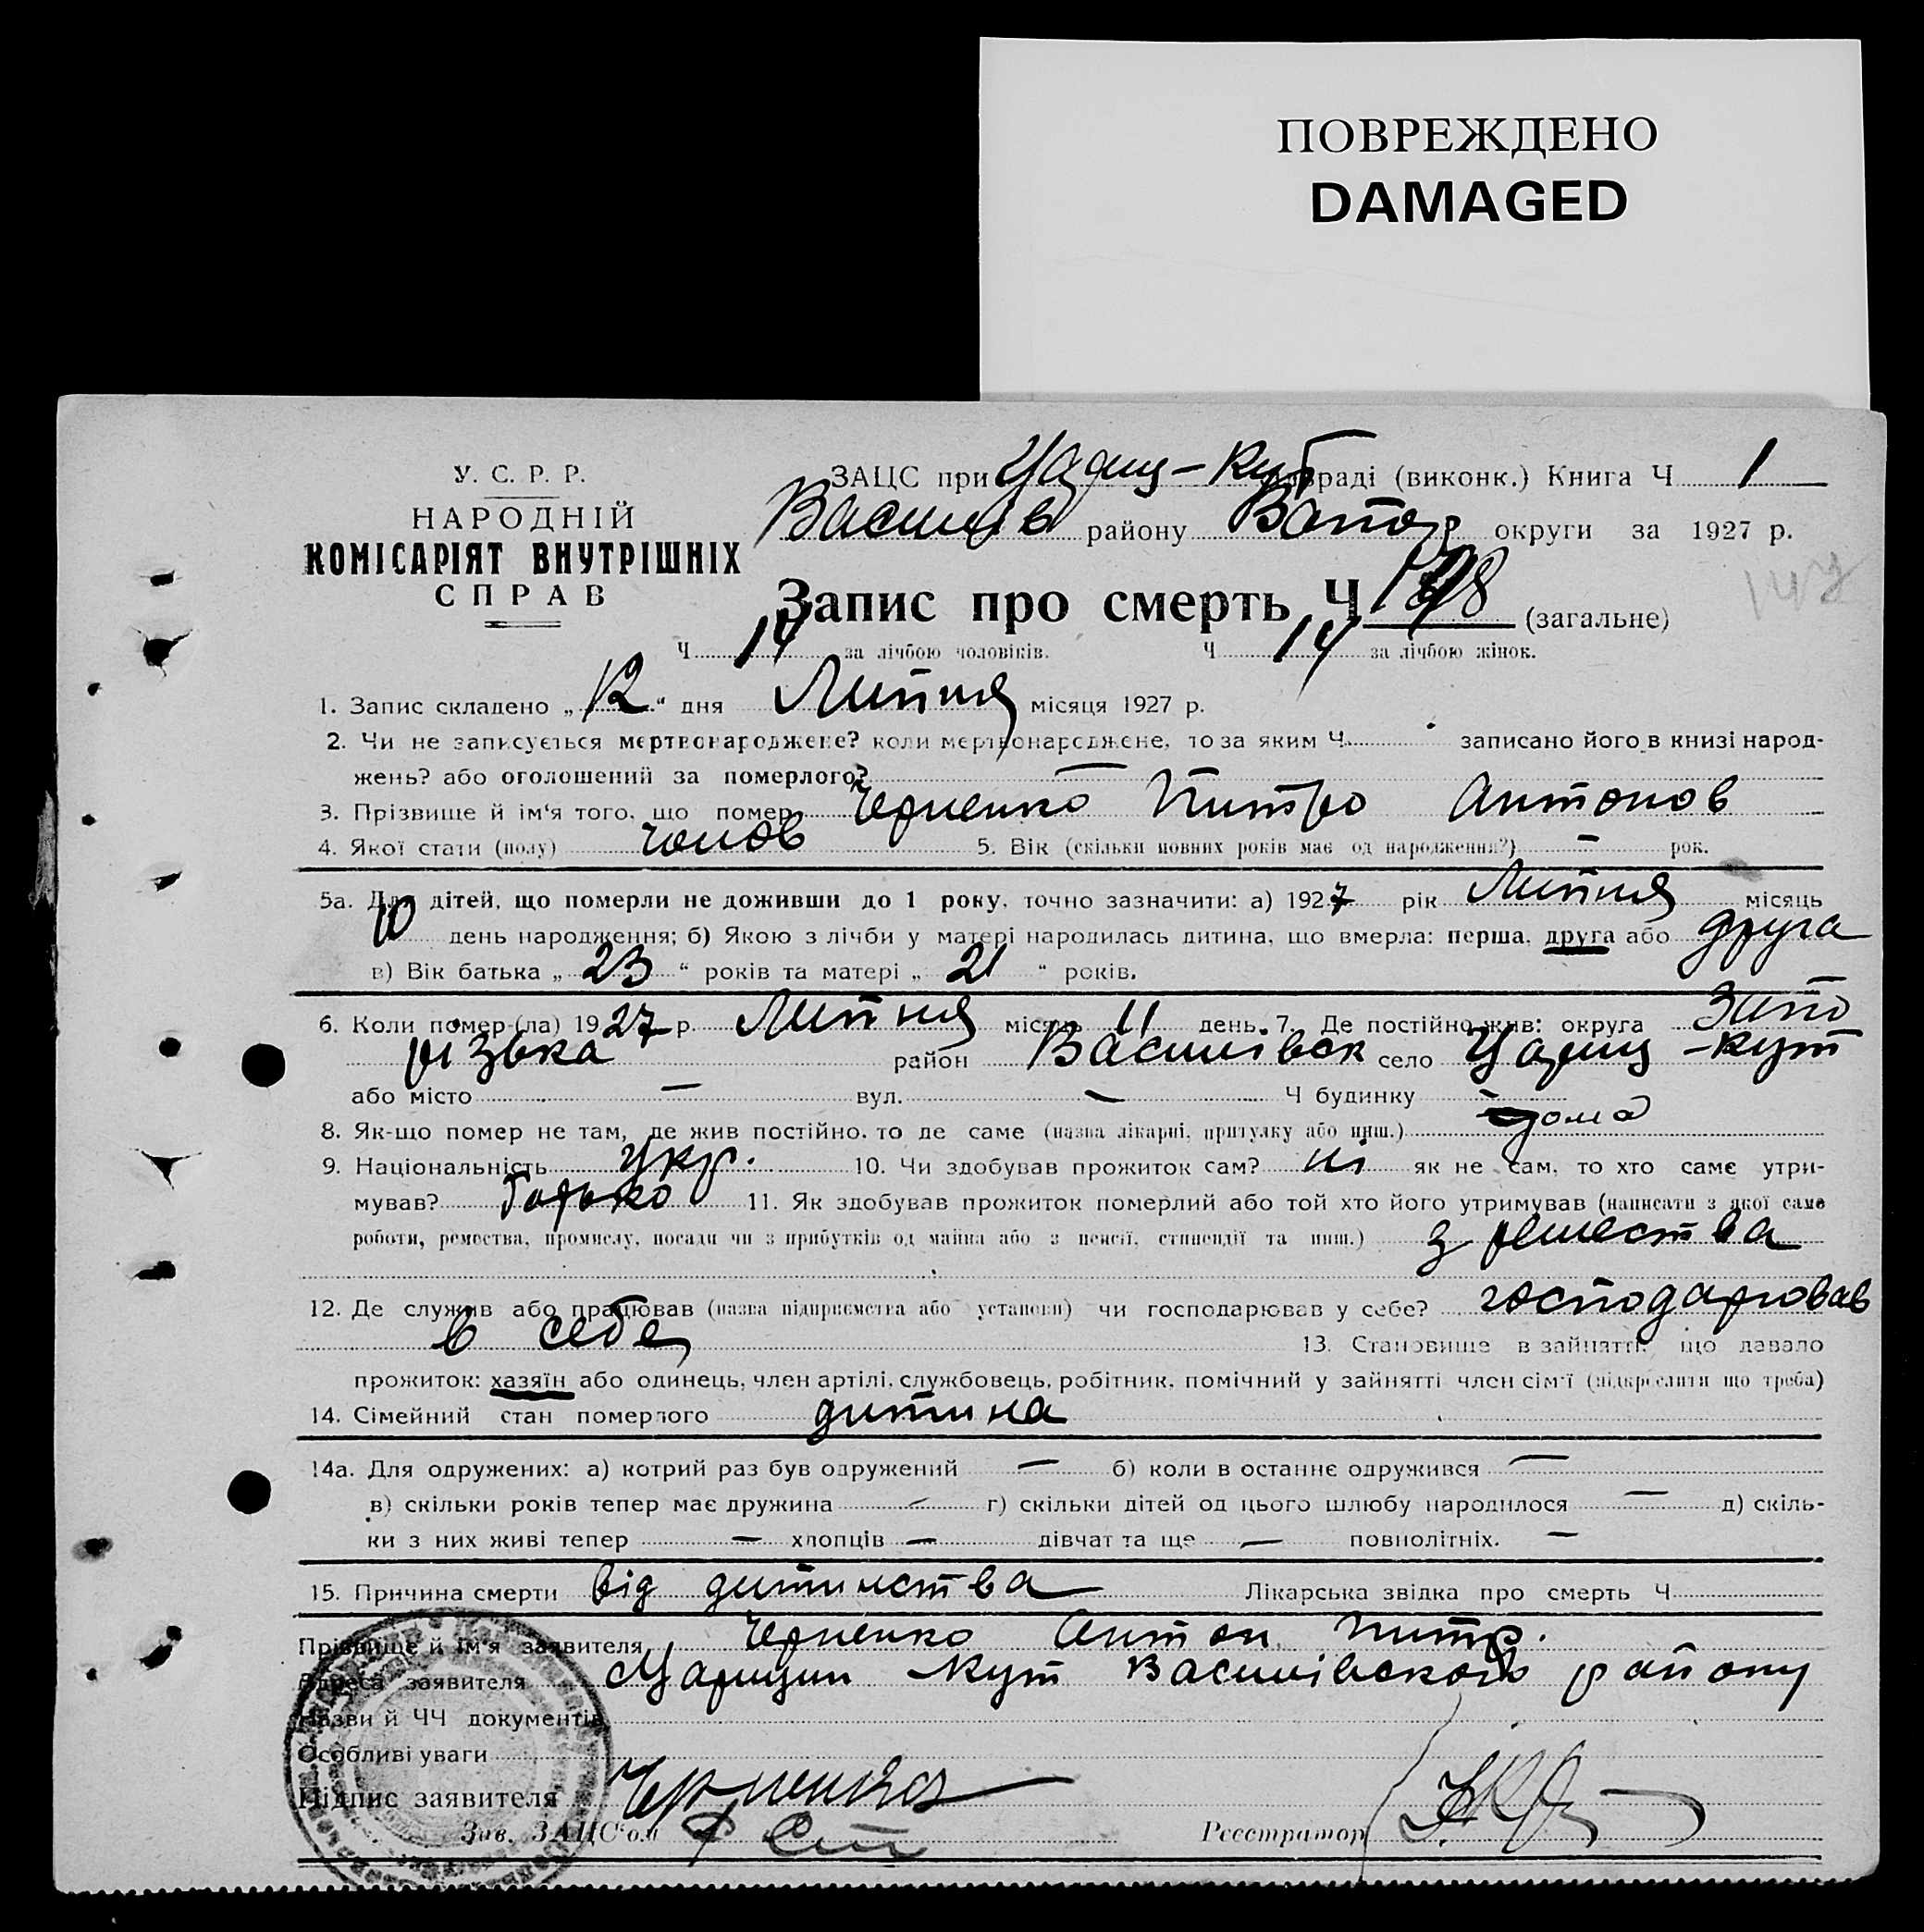 ПОВРЕЖДЕНО
DAMAGED
У. С. Р. Р.
НАРОДНІЙ
КОМІСАРІЯТ ВНУТРІШНІХ
СПРАВ
ЗАЦС при Цариц-Кут раді (виконк.) Книга Ч 1
Василів району Запор округи за 1927 р.
Запис про смерть Ч (загальне)
Ч 14 за лічбою чоловіків. Ч 14 за лічбою жінок.
1. Запис складено „12“ дня Липня місяця 1927 р.
2. Чи не записується мертвонароджене? коли мертвонароджене, то за яким Ч. записано його в книзі народ-
жень? або оголошений за померлого? —
3. Прізвище й ім'я того, що помер Черненко Питро Антонов
4. Якої стати (полу) чолов 5. Вік (скільки повних років має од народження?) — рок.
5а. Для дітей, що померли не доживши до 1 року, точно зазначити: а) 1927 рік Липня місяць
10 день народження; б) Якою з лічби у матері народилась дитина, що вмерла: перша, друга або друга
в) Вік батька „23“ років та матері „21“ років.
6. Коли помер (ла) 1927 р. Липня місяць 11 день 7. Де постійно жив: округа Запо
різька район Василівск село Цариц-Кут
або місто — вул. — Ч будинку —
8. Як-що помер не там, де жив постійно, то де саме (назва лікарні, притулку або инш.) дома
9. Національність укр. 10. Чи здобував прожиток сам? ні як не сам, то хто саме утри-
мував? батько 11. Як здобував прожиток померлий або той хто його утримував (написати з якої саме
роботи, ремества, промислу, посади чи з прибутків од майна або з пенсії, стипендії та инш.) з ремества
12. Де служив або працював (назва підприємства або установи) чи господарював у себе? господарював
в себе 13. Становище в зайнятті, що давало
прожиток: хазяїн або одинець, член артілі, службовець, робітник, помічний у зайнятті член сім'ї (підкреслити що треба)
14. Сімейний стан померлого дитина
14а. Для одружених: а) котрий раз був одружений — б) коли в останнє одружився —
в) скільки років тепер має дружина — г) скільки дітей од цього шлюбу народилося — д) скіль-
ки з них живі тепер — хлопців — дівчат та ще — повнолітніх. —
15. Причина смерти від дитинства Лікарська звідка про смерть Ч
Прізвище й ім'я заявителя Черненко Антон Питр.
Адреса заявителя Царицин Кут Василівского району
Назви й ЧЧ документів
Особливі уваги
Підпис заявителя Черненко
Зав. ЗАЦС'ом
Реєстратор